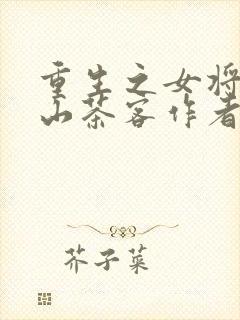 重生之女将
山茶客作者
芥子菜